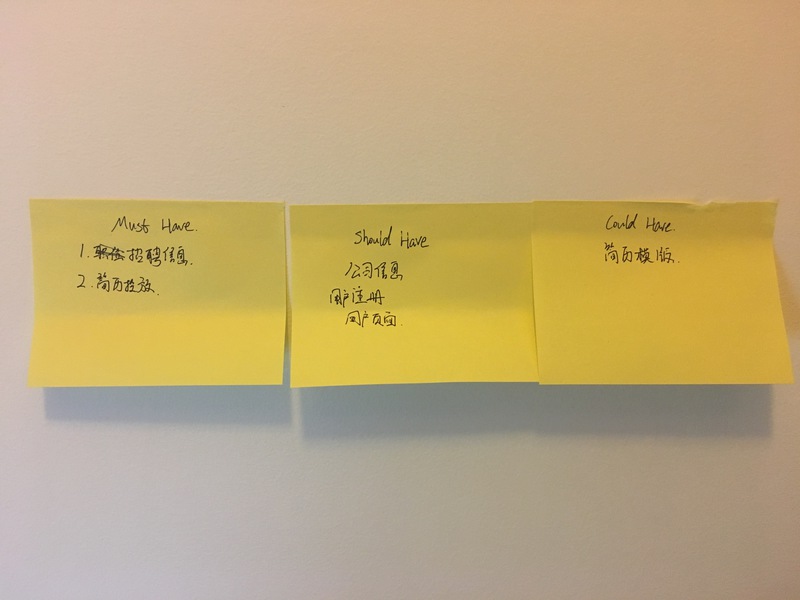 Must Have.
1. 招聘信息.
2. 简历投放.
Should Have
公司信息
用户注册
用户页面.
Could Have.
简历模版.